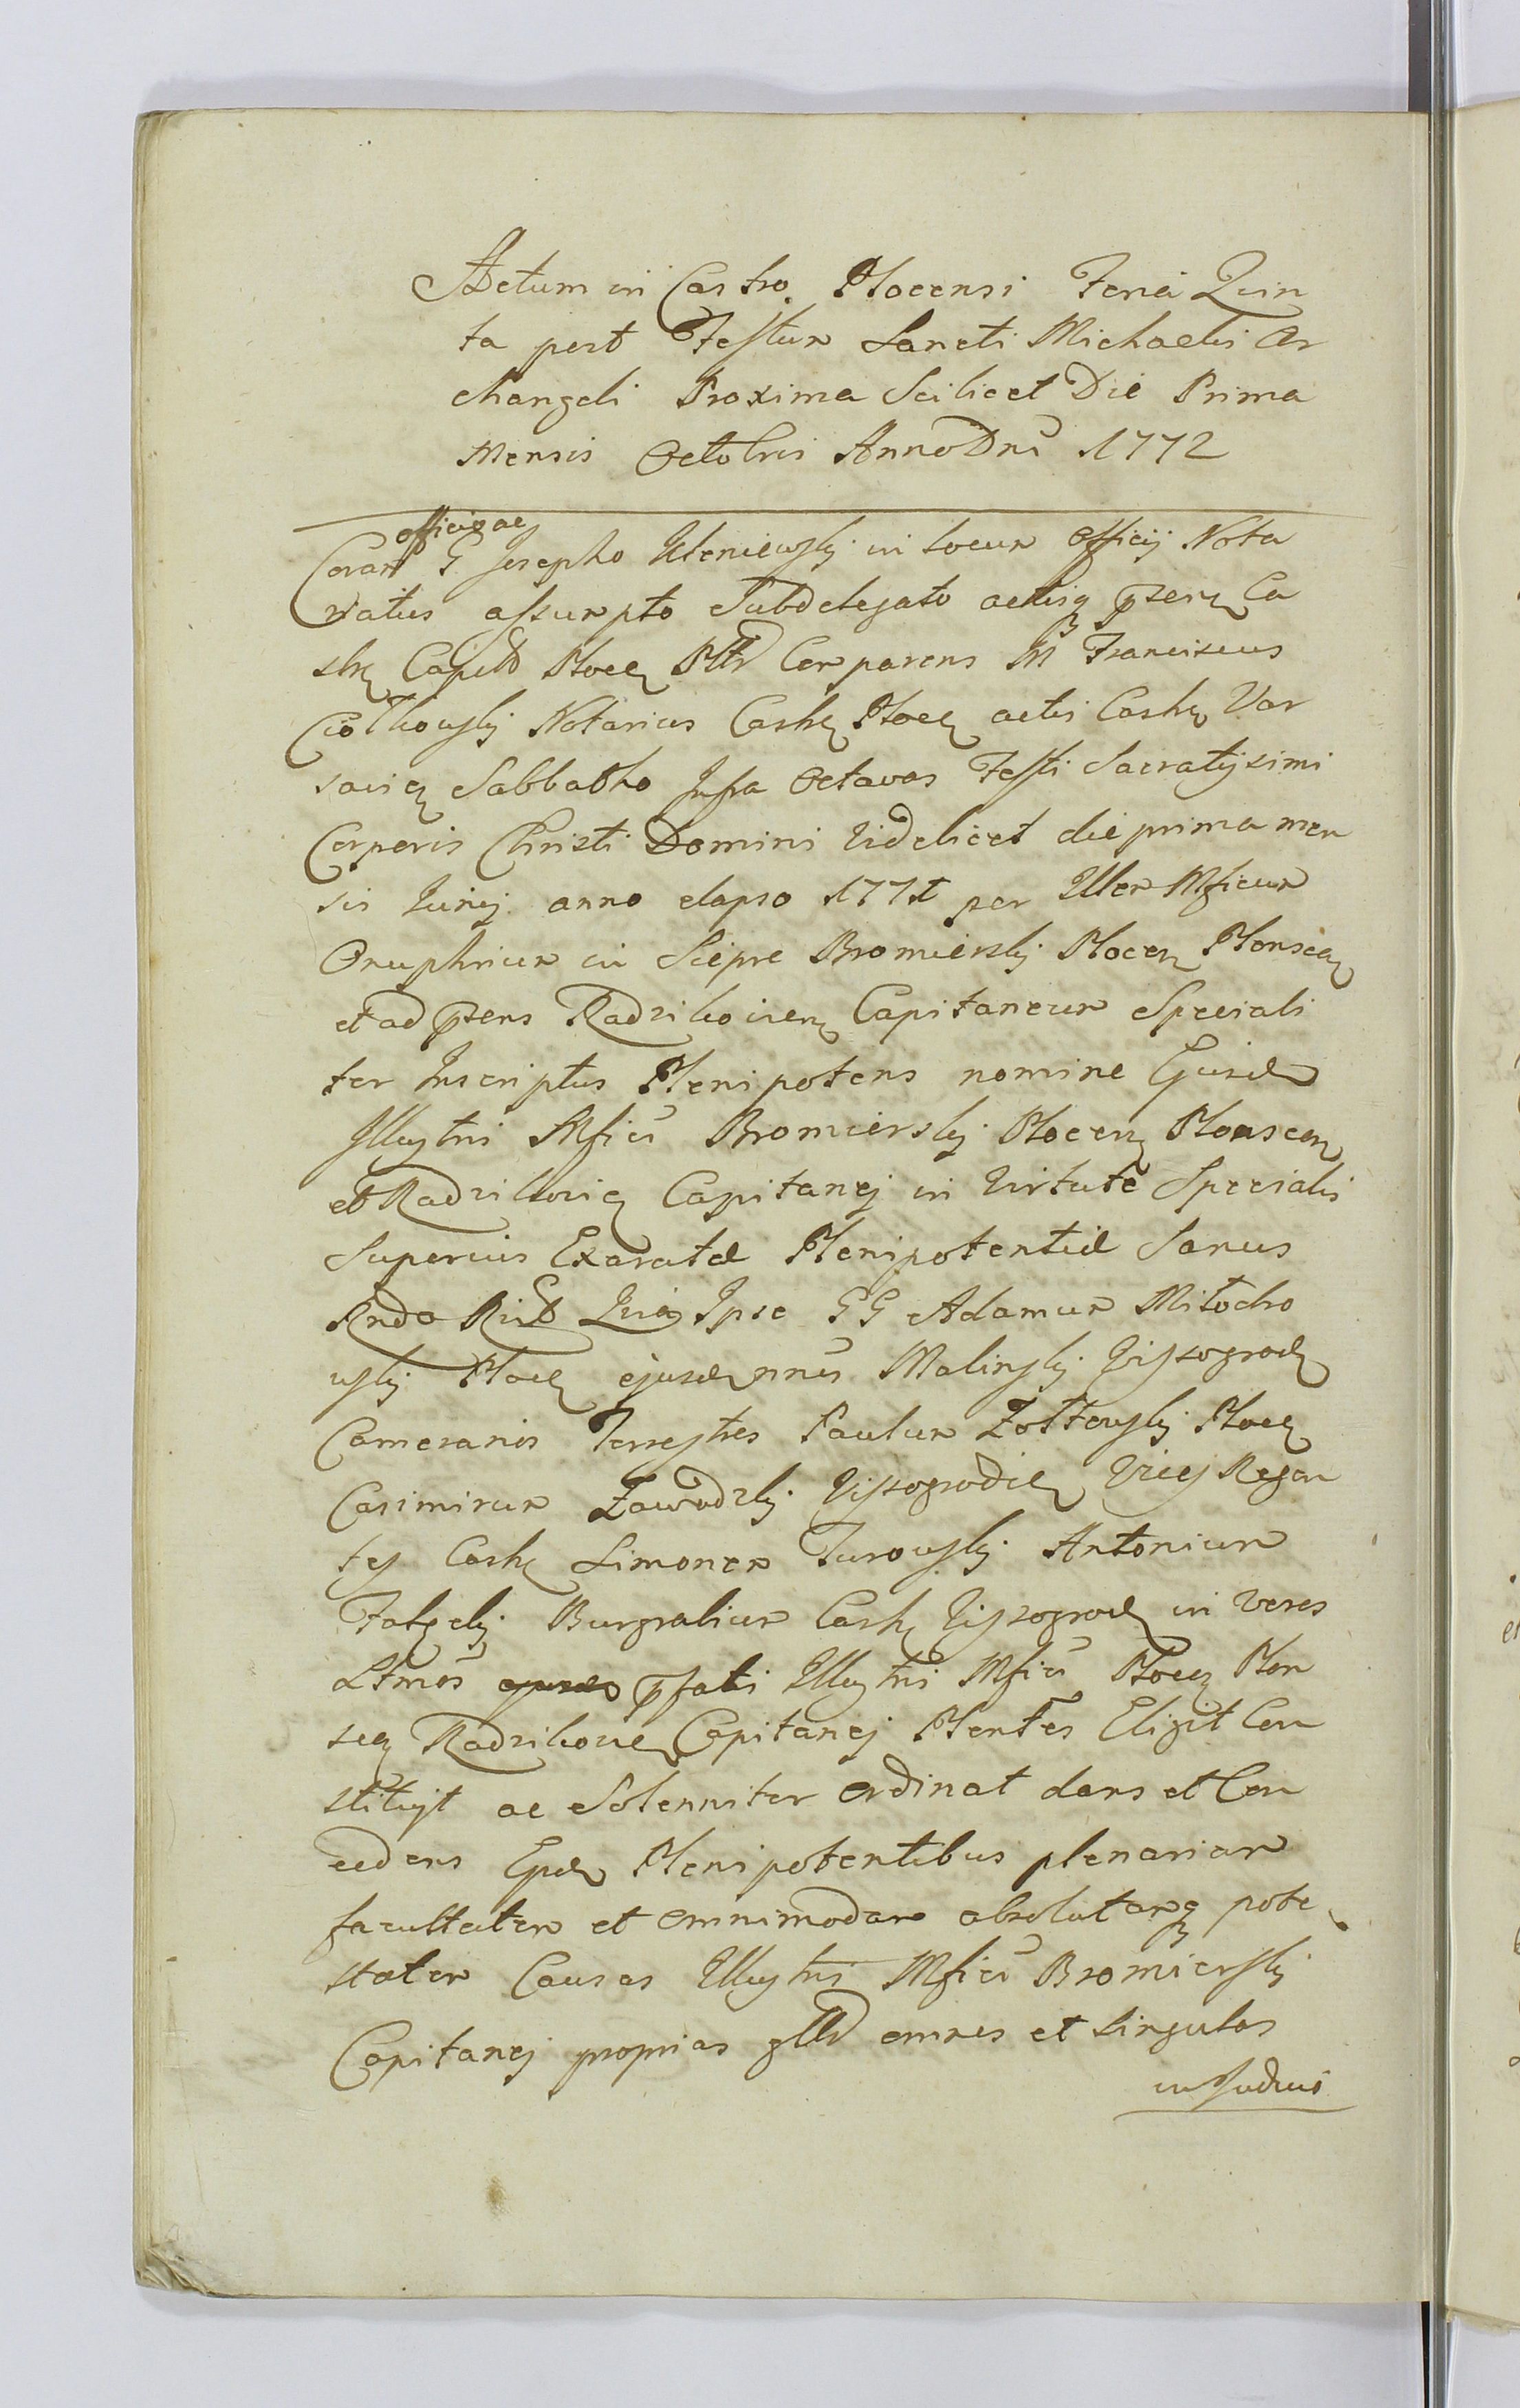 Actum in Castro Plocensi Feria Quin
ta post Festum Sancti Michaelis Ar
changeli Proxima Scilicet Die Prima
Mensis Octobris Anno Dni 1772
officio ac
Coram G Josepho in locum Officij Nota
riatus assumpto Subdelegato actisq pſen Ca
str Capit Ploc Comparens M Franciscus
Ciołkowskj Notarius Castr Ploc actis Castr Var
savien Sabbatho Infra Octavas Festi Sacratissimi
Corporis Christi Domini Videlicet die prima men
sis Junij anno elapso 1771 per Illrem Mficum
Onuphrium in Siepre Bromierskj Plocen Plonscen
et ad pſens Radzikovien Capitaneum Speciali
ter Inscriptus Plenipotens nomine Ejusd
Illustris Mfici Bromierskj Plocen Plonscen
et Radzikovien Capitanej in Virtute Specialis
Superius Exaratæ Plenipotentiæ Sanus
Ipse GG Adamum Mitocho
wskj Ploc ejusd nnis Malinskj Vissogrod
Camerarios Terrestres Paulum Zołtowskj Ploc
Casimirum Zawadzkj Vissogrodie Vices Regen
tes Castr Simonem Turowskj Antonium
Burgrabium Castr Vissogrod in veros
Ltmos pfati Illustris Mfici Ploc Plon
scen Radzikovien Capitanej Plentes Eligit Con
stituit ac Solenniter ordinat dans et Con
cedens Eisd Plenipotentibus plenariam
facultatem et omnimodam absolutamq pote
statem Causas Illustris Mfici Bromierskj
Capitanej proprias omnes et singulas
in Judicio